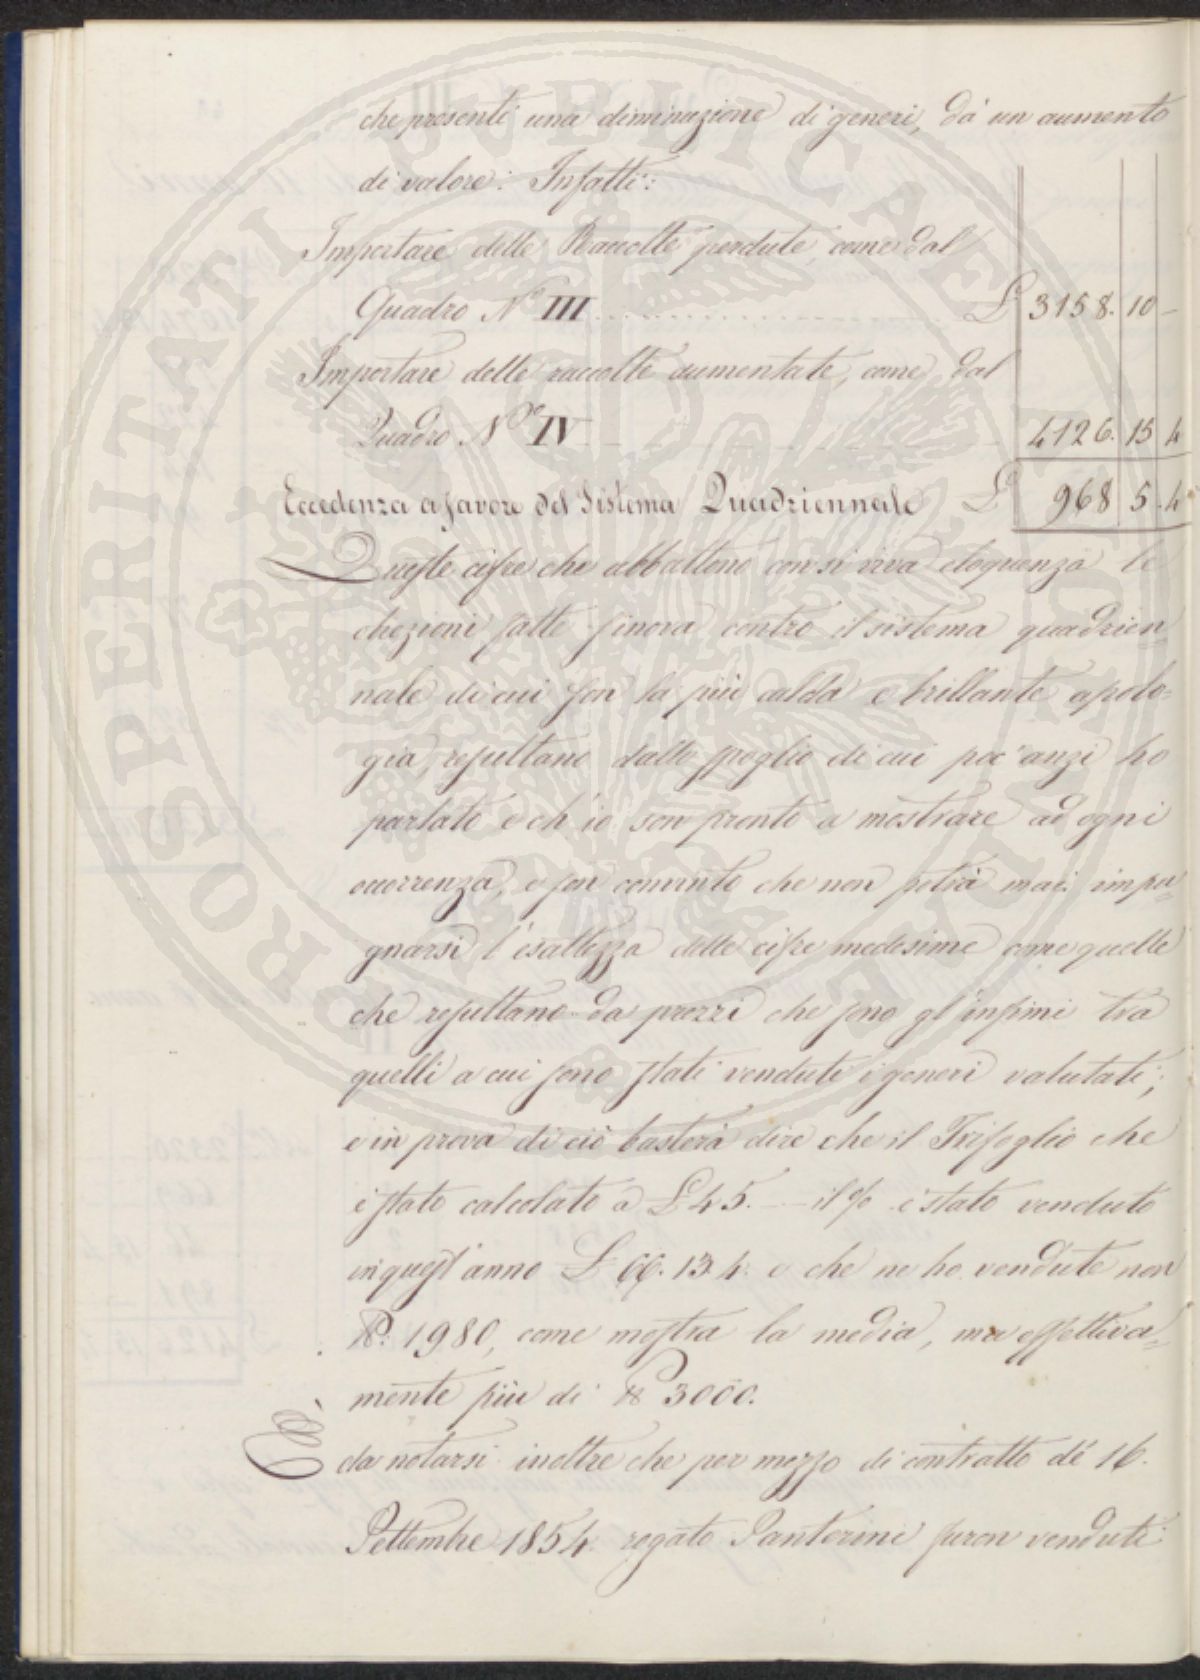 che presenti una diminuzione di generi, dà un aumento
di valore: Infatti:
Importare delle Raccolte perdute, come dal
Quadro N.º III ........ L. 3158. 10 –
Importare delle raccolte aumentate, come dal
Quadro N.º IV 4126. 15 4
Eccedenza a favore del Sistema Quadriennale L. 968 5. 4
Queste cifre che abbattono con sì viva eloquenza le
obezioni fatte finora contro il sistema quadrien=
nale di cui son la più calda e brillante apolo=
gia, resultano dallo spoglio di cui poc'anzi ho
parlato e ch'io son pronto a mostrare ad ogni
occorrenza, e son convinto che non potrà mai impu=
gnarsi l'esattezza delle cifre medesime come quelle
che resultano da prezzi che sono gl'infimi tra
quelli a cui sono stati venduti i generi valutati;
e in prova di ciò basterà dire che il Trifoglio che
è stato calcolato a L 45. — il % è stato venduto
in quest'anno L 66. 13. 4. e che ne ho vendute non
lb: 1980, come mostra la media, ma effettiva=
mente più di lb 3000.
È da notarsi inoltre che per mezzo di contratto de' 16.
Settembre 1854. rogato Panterini furon venduti
PROSPERITATI PVBLICAE AVGENDAE